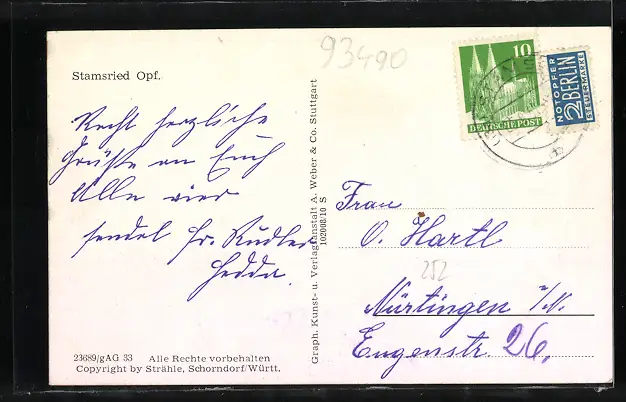 Stamsried Opf.
93490
10
DEUTSCHE POST
NOTOPFER
2 BERLIN
STEUERMARKE
Recht herzliche
Grüße an Euch
Alle vier
sendet Fr. Rudler
Hedda.
Graph. Kunst- u. Verlagsanstalt A. Weber & Co. Stuttgart
102008/10 S
Frau
O. Hartl
252
Nürtingen a/N.
Eugenstr. 26.
23689/gAG 33 Alle Rechte vorbehalten
Copyright by Strähle, Schorndorf/Württ.